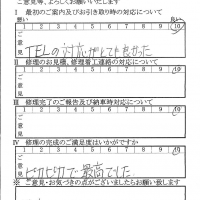 ご意見等、よろしくお願いいたします
Ⅰ 最初のご案内及びお引き取り時の対応について
悪い 良い
1 2 3 4 5 6 7 8 9 10
ご意見 TELの対応がとても良かった
Ⅱ 修理のお見積、修理着工連絡の対応について
1 2 3 4 5 6 7 8 9 10
ご意見
Ⅲ 修理完了のご報告及び納車時対応について
1 2 3 4 5 6 7 8 9 10
ご意見
Ⅳ 修理の完成のご満足度はいかがですか
1 2 3 4 5 6 7 8 9 10
ご意見 ピカピカで最高でした
※ ご意見・お気づきの点がございましたらお願い致します